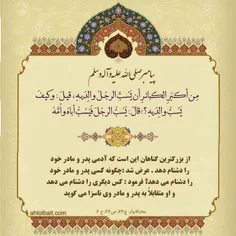 پیامبر صلی الله علیه و آله وسلم
مِن أکبَرِ الکبائرِ أن یَسُبَّ الرجُلُ والِدَیهِ، قیلَ: وکیفَ
یَسُبُّ والِدَیهِ؟! قالَ: یَسُبُّ الرجُلَ فَیَسُبُّ أباهُ واُمَّهُ
از بزرگترین گناهان این است که آدمی پدر و مادر خود
را دشنام دهد . عرض شد :چگونه کسی پدر و مادر خود
را دشنام می دهد؟ فرمود : کس دیگری را دشنام می دهد
و او متقابلاً به پدر و مادر وی ناسزا می گوید
ahlolbait.com